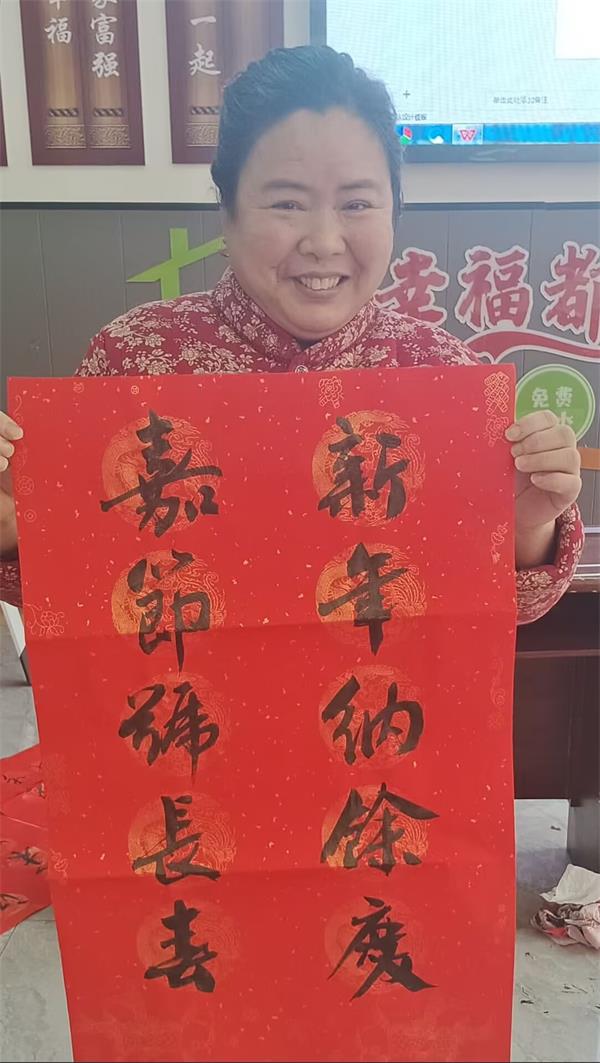 福
富强
一起
幸福都
免费
新年納餘慶
嘉節號長春